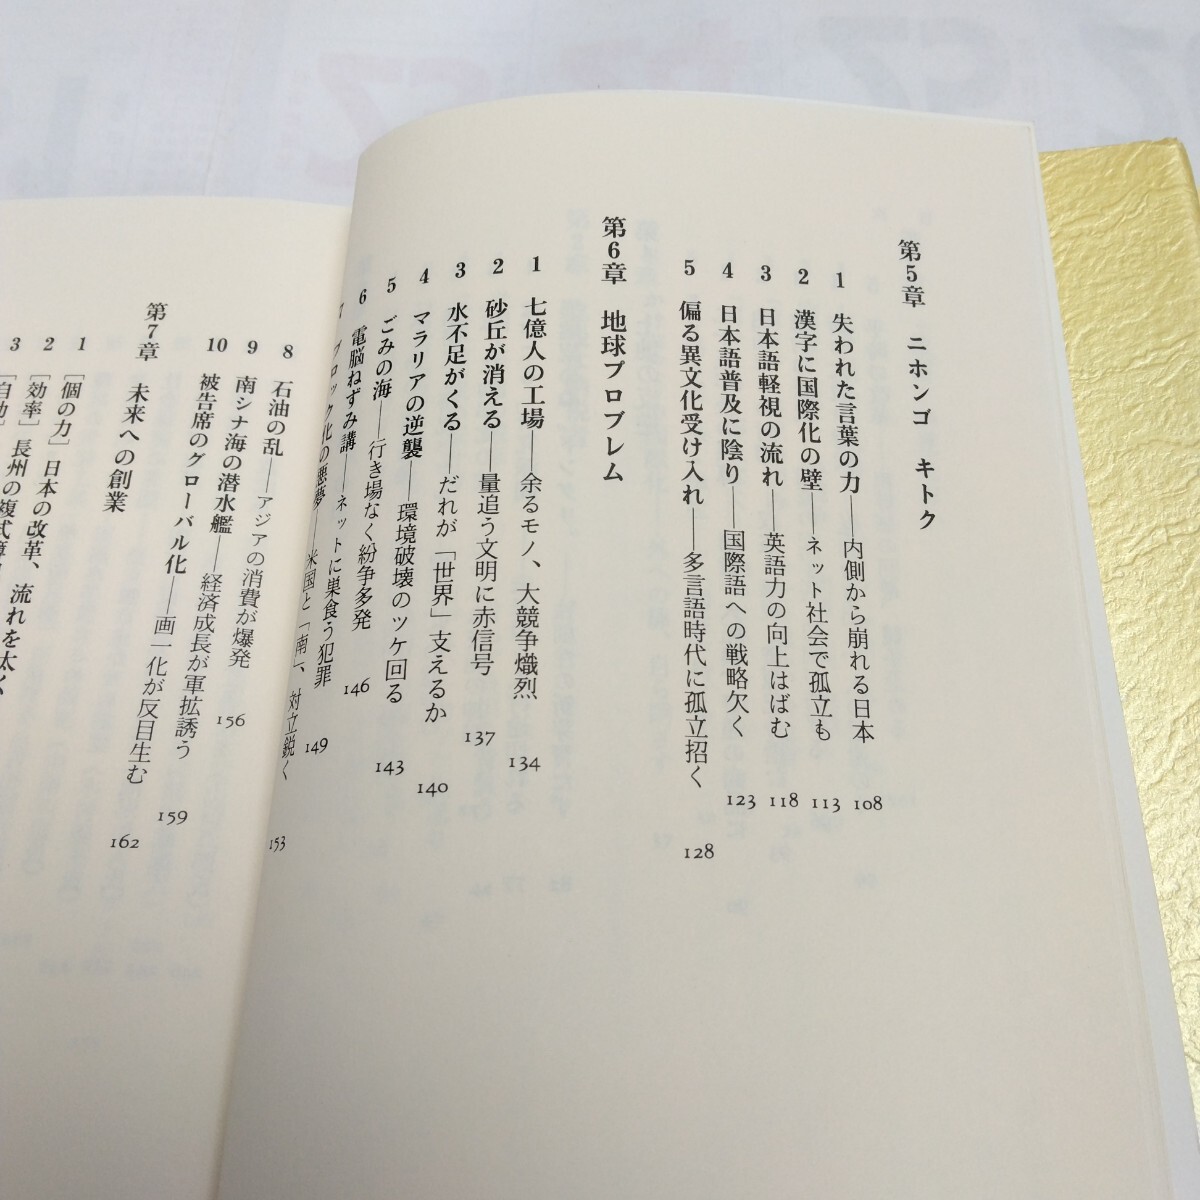 第5章 ニホンゴ キトク
1 失われた言葉の力――内側から崩れる日本 108
2 漢字に国際化の壁――ネット社会で孤立も 113
3 日本語軽視の流れ――英語力の向上はばむ 118
4 日本語普及に陰り――国際語への戦略欠く 123
5 偏る異文化受け入れ――多言語時代に孤立招く 128
第6章 地球プロブレム
1 七億人の工場――余るモノ、大競争熾烈 134
2 砂丘が消える――量追う文明に赤信号 137
3 水不足がくる――だれが「世界」支えるか 140
4 マラリアの逆襲――環境破壊のツケ回る 143
5 ごみの海――行き場なく紛争多発 146
6 電脳ねずみ講――ネットに巣食う犯罪 149
7 ブロック化の悪夢――米国と「南」、対立鋭く 153
8 石油の乱――アジアの消費が爆発 156
9 南シナ海の潜水艦――経済成長が軍拡誘う 159
10 被告席のグローバル化――画一化が反目生む 162
第7章 未来への創業
1 [個の力] 日本の改革、流れを太く
2 [効率] 長州の複式簿
3 [自助]